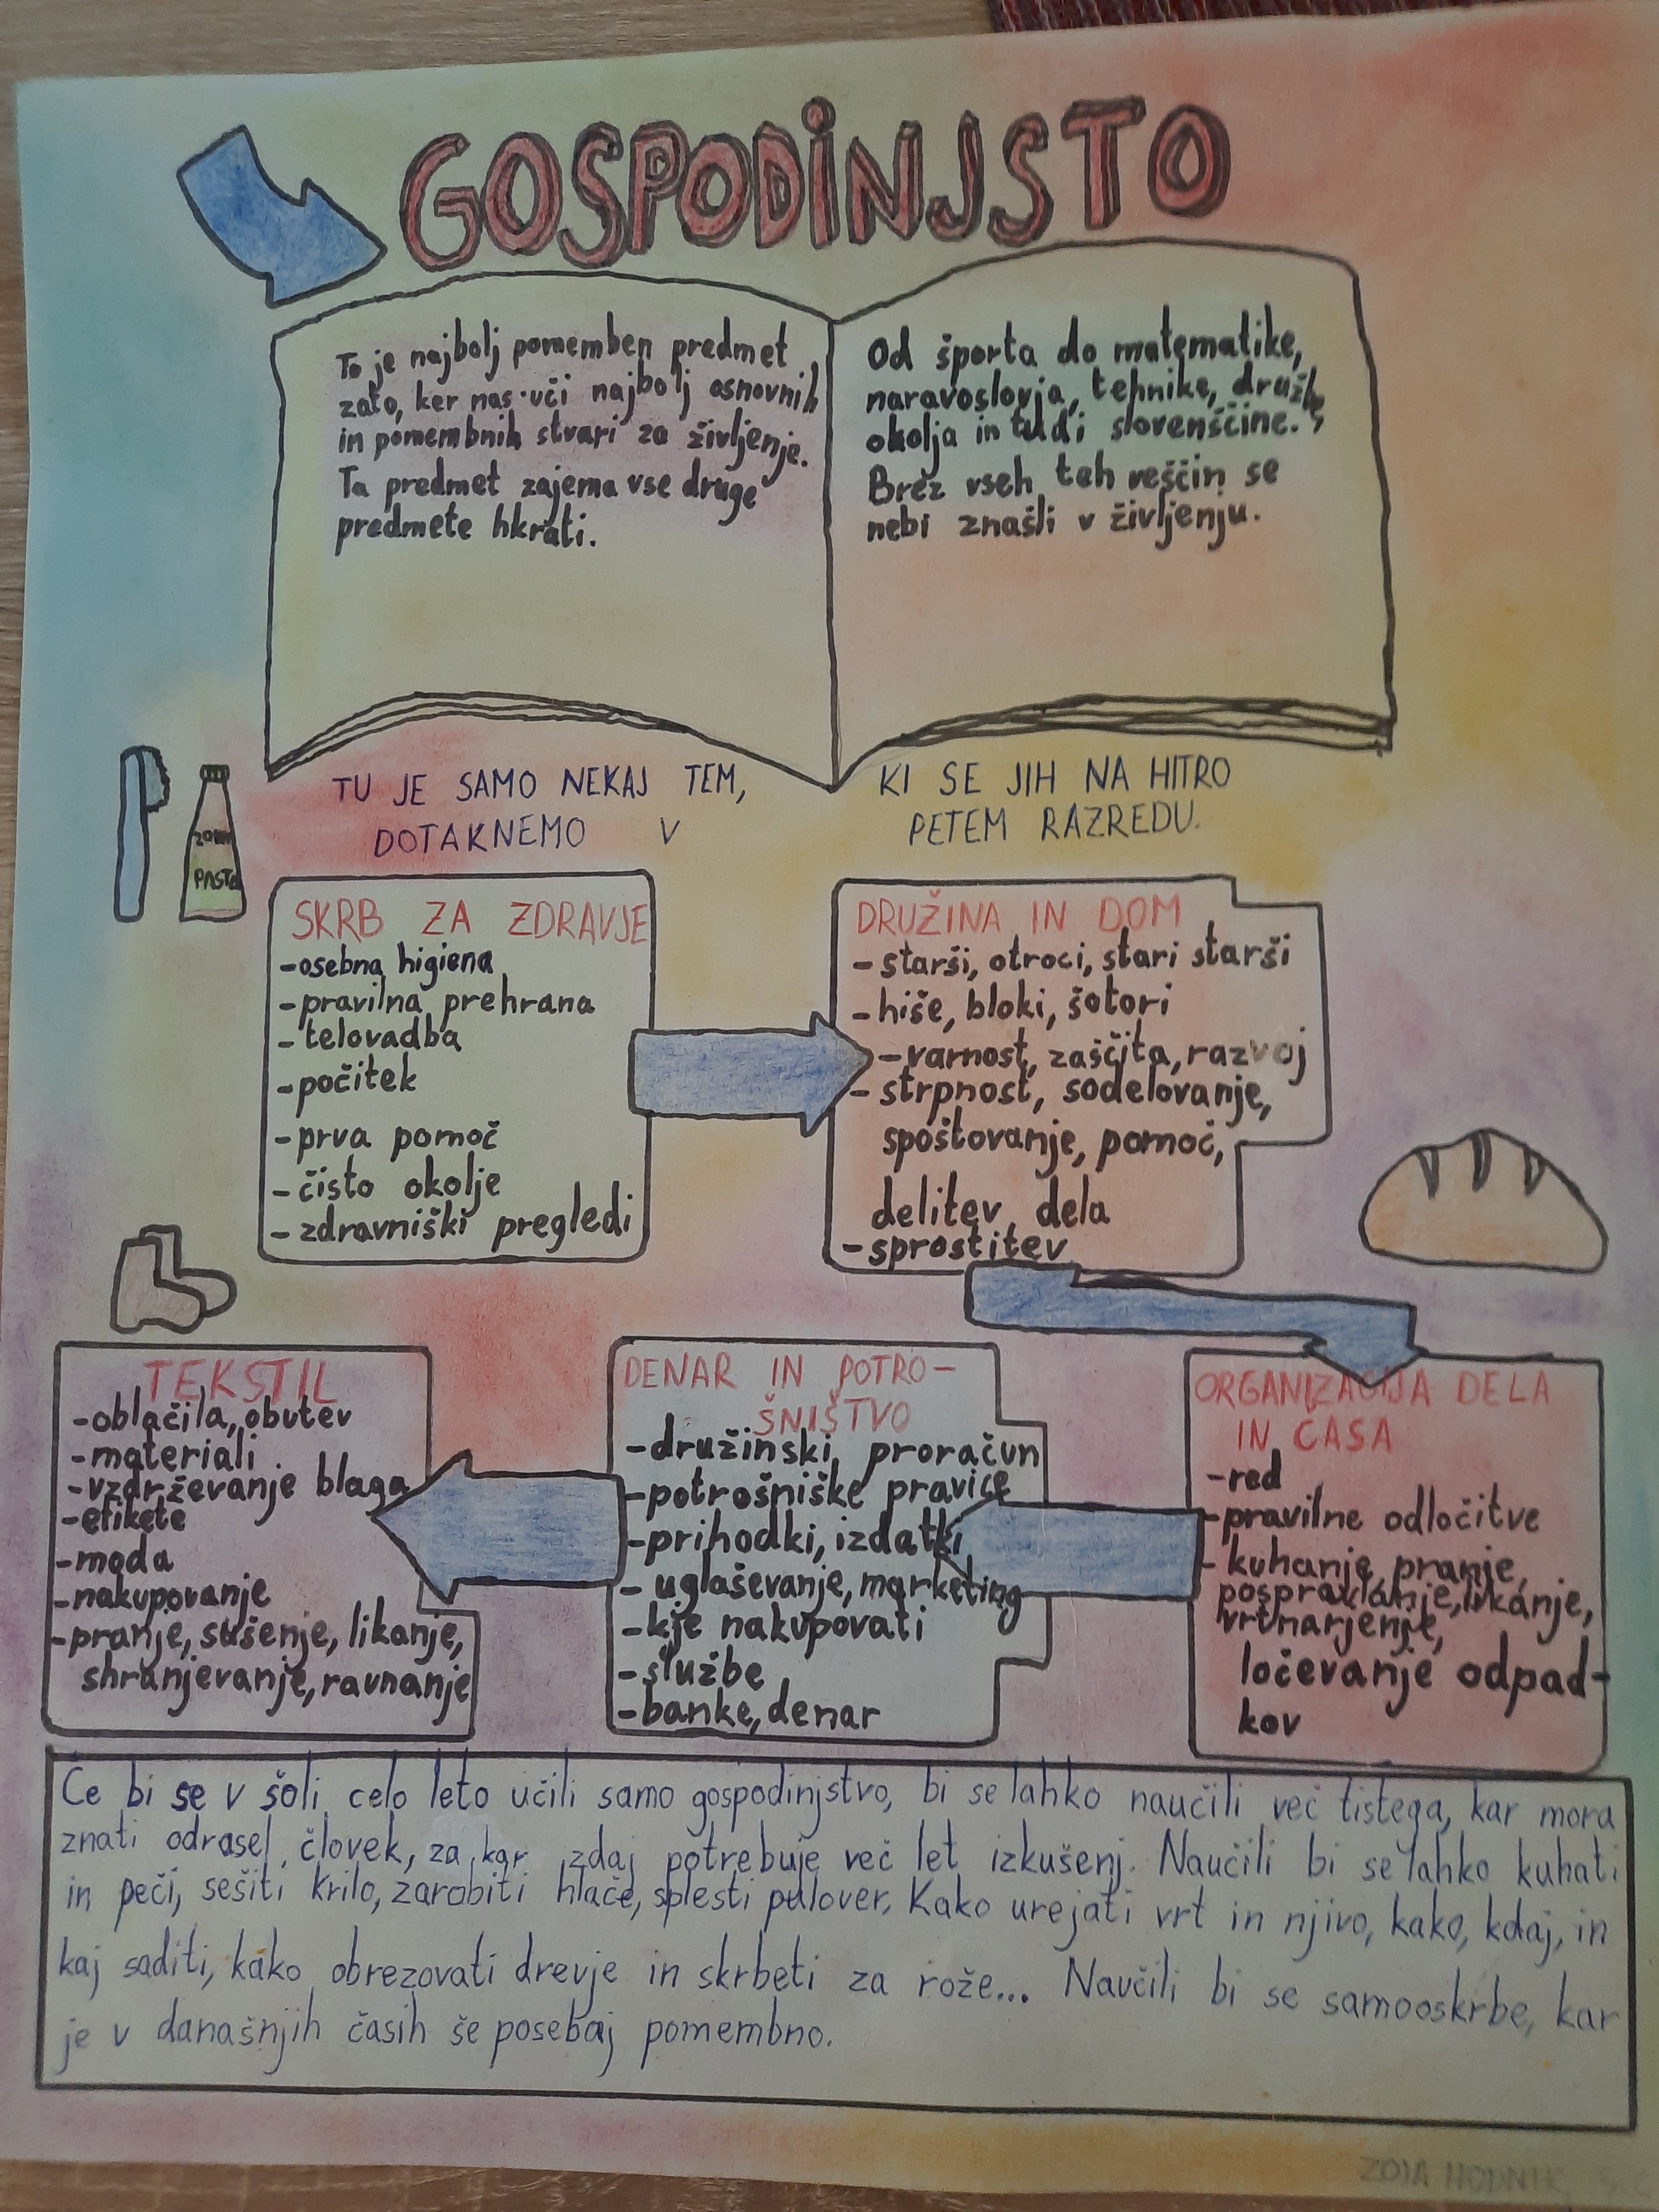 GOSPODINJSTO
To je najbolj pomemben predmet
zato, ker nas uči najbolj osnovnih
in pomembnih stvari za življenje.
Ta predmet zajema vse druge
predmete hkrati.
Od športa do matematike,
naravoslovja, tehnike, družbe,
okolja in tudi slovenščine.
Brez vseh teh veščin se
nebi znašli v življenju.
TU JE SAMO NEKAJ TEM, KI SE JIH NA HITRO
DOTAKNEMO V PETEM RAZREDU.
ZOBNA
PASTA
SKRB ZA ZDRAVJE
-osebna higiena
-pravilna prehrana
-telovadba
-počitek
-prva pomoč
-čisto okolje
-zdravniški pregledi
DRUŽINA IN DOM
-starši, otroci, stari starši
-hiše, bloki, šotori
-varnost, zaščita, razvoj
-strpnost, sodelovanje,
spoštovanje, pomoč,
delitev dela
-sprostitev
ORGANIZACIJA DELA
IN ČASA
-red
-pravilne odločitve
-kuhanje, pranje,
pospravlanje, likanje,
vrtnarjenje,
ločevanje odpad-
kov
DENAR IN POTRO-
ŠNIŠTVO
-družinski proračun
-potrošniške pravice
-prihodki, izdatki
-uglaševanje, marketing
-kje nakupovati
-službe
-banke, denar
TEKSTIL
-oblačila, obutev
-materiali
-vzdrževanje blaga
-etikete
-moda
-nakupovanje
-pranje, sušenje, likanje,
shranjevanje, ravnanje
Če bi se v šoli celo leto učili samo gospodinjstvo, bi se lahko naučili več tistega, kar mora
znati odrasel človek, za kar zdaj potrebuje več let izkušenj. Naučili bi se lahko kuhati
in peči, sešiti krilo, zarobiti hlače, splesti pulover. Kako urejati vrt in njivo, kako, kdaj, in
kaj saditi, kako obrezovati drevje in skrbeti za rože... Naučili bi se samooskrbe, kar
je v današnjih časih še posebaj pomembno.
ZOJA HODNIK